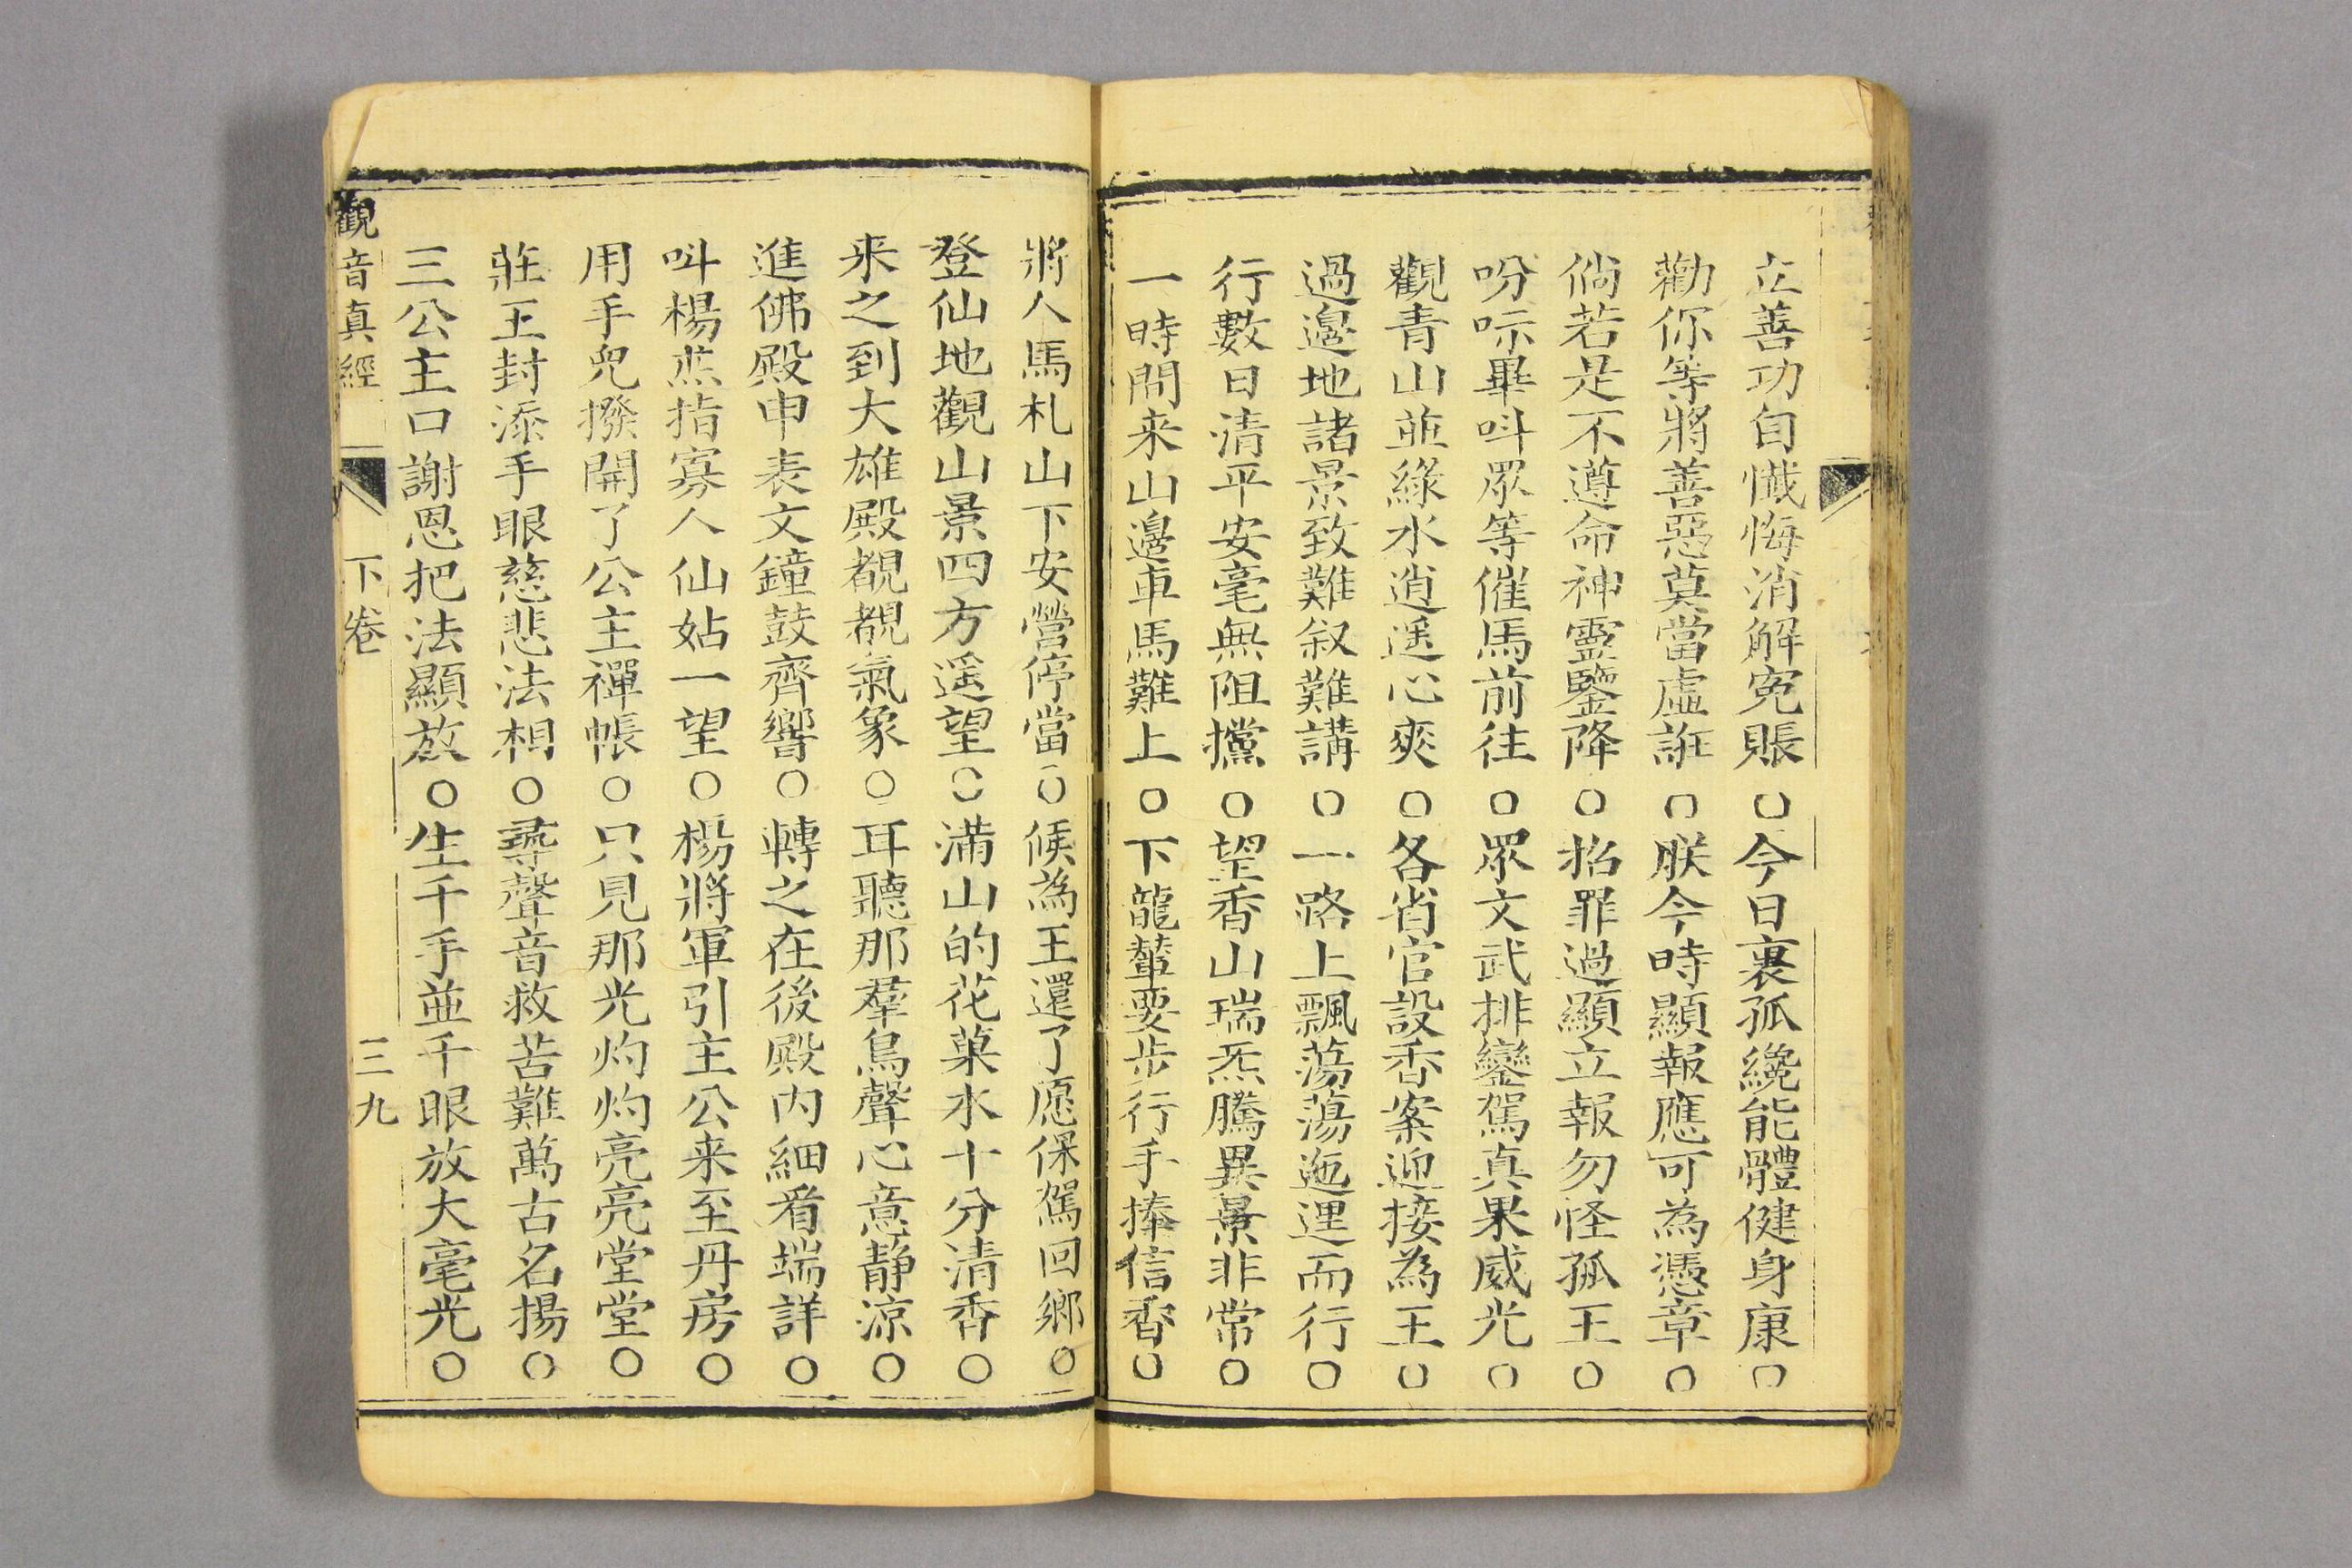 立善功自懺悔消解冤賬○今日裏孤纔能體健身康○
勸你等將善惡莫當虛誑○朕今時顯報應可為憑章○
倘若是不遵命神靈鑒降○招罪過顯立報勿怪孤王○
吩咐畢叫眾等催馬前往○眾文武排鑾駕真果威光○
觀青山並綠水逍遥心爽○各省官設香案迎接為王○
過邊地諸景致難叙難講○一路上飄蕩蕩迤逕而行○
行數日清平安毫無阻攩○望香山瑞炁騰異景非常○
一時間来山邊車馬難上○下龍輦要步行手捧信香○
將人馬札山下安營停當○候為王還了愿保駕回鄉○
登仙地觀山景四方遥望○滿山的花菓水十分清香○
来之到大雄殿覩覩氣象○耳聽那羣鳥聲心意靜涼○
進佛殿申表文鐘鼓齊響○轉之在後殿内細看端詳○
叫楊烝指寡人仙姑一望○楊將軍引主公来至丹房○
用手兒撥開了公主禪帳○只見那光灼灼亮亮堂堂○
莊王封添手眼慈悲法相○尋聲音救苦難萬古名揚○
三公主口謝恩把法顯放○生千手並千眼放大毫光○
觀音真經 下卷 三九